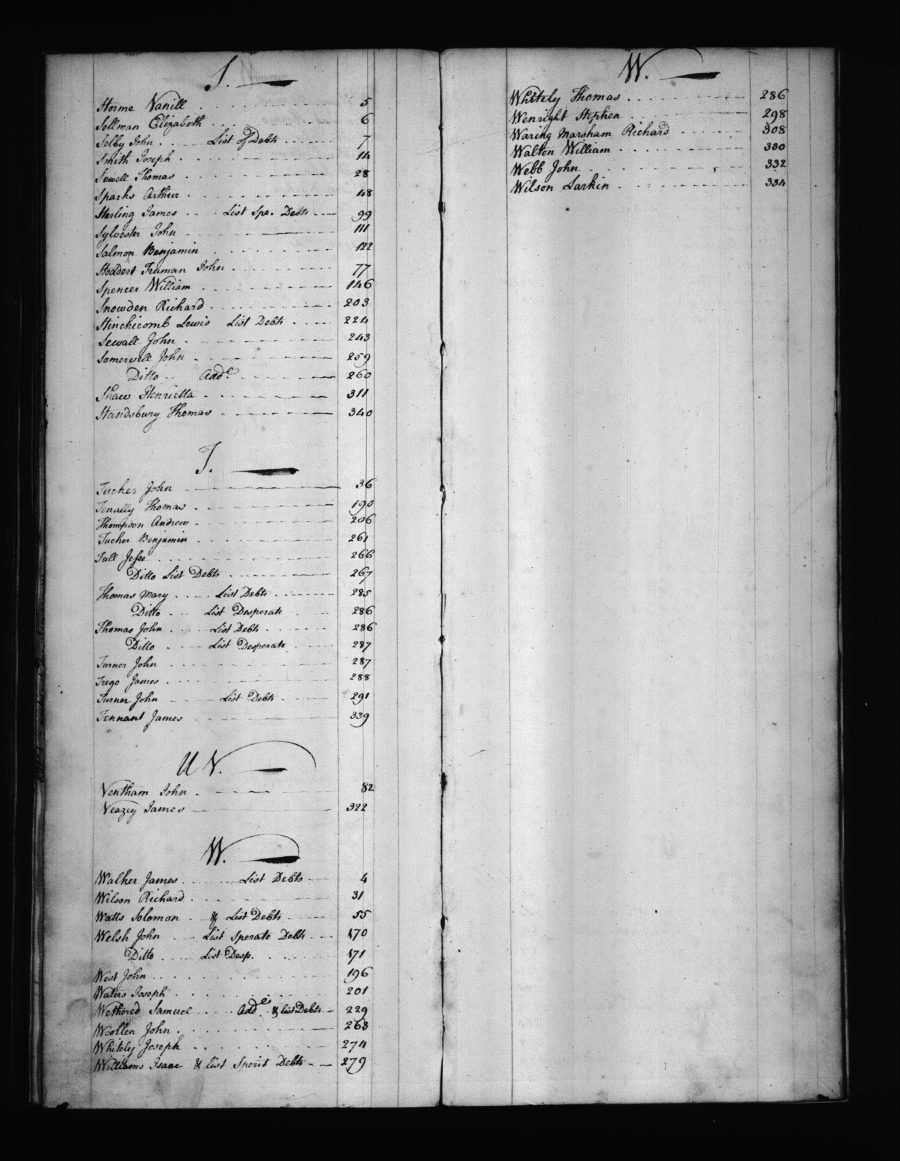 S.
Storme Vanill 5
Sellman Elizabeth 6
Selby John List of Debts 7
Smith Joseph 14
Sewell Thomas 28
Sparks Arthur 48
Sterling James List Spe. Debts 99
Sylvester John 111
Salmon Benjamin 122
Stoddert Truman John 77
Spencer William 146
Snowden Richard 203
Stinchicomb Lewis List Debts 224
Sewall John 243
Somervell John 259
Ditto Add.^e 260
Shaw Henrietta 311
Standsbury Thomas 340
T.
Tucker John 36
Tenally Thomas 190
Thompson Andrew 206
Tucker Benjamin 261
Tull Jesse 266
Ditto List Debts 267
Thomas Mary List Debts 285
Ditto List Desperate 286
Thomas John List Debts 286
Ditto List Desperate 287
Turner John 287
Trego James 288
Turner John List Debts 291
Tennant James 339
U V.
Ventham John 82
Veazey James 322
W.
Walker James List Debts 4
Wilson Richard 31
Watts Solomon & List Debts 55
Welsh John List Sperate Debts 170
Ditto List Desp. 171
West John 196
Waters Joseph 201
Wethered Samuel Add.^e & list Debts 229
Woollen John 268
Whitely Joseph 274
Williams Isaac & list Sperit Debts 279
W.
Whitely Thomas 286
Wenright Stephen 298
Waring Marsham Richard 308
Walton William 330
Webb John 332
Wilson Larkin 334